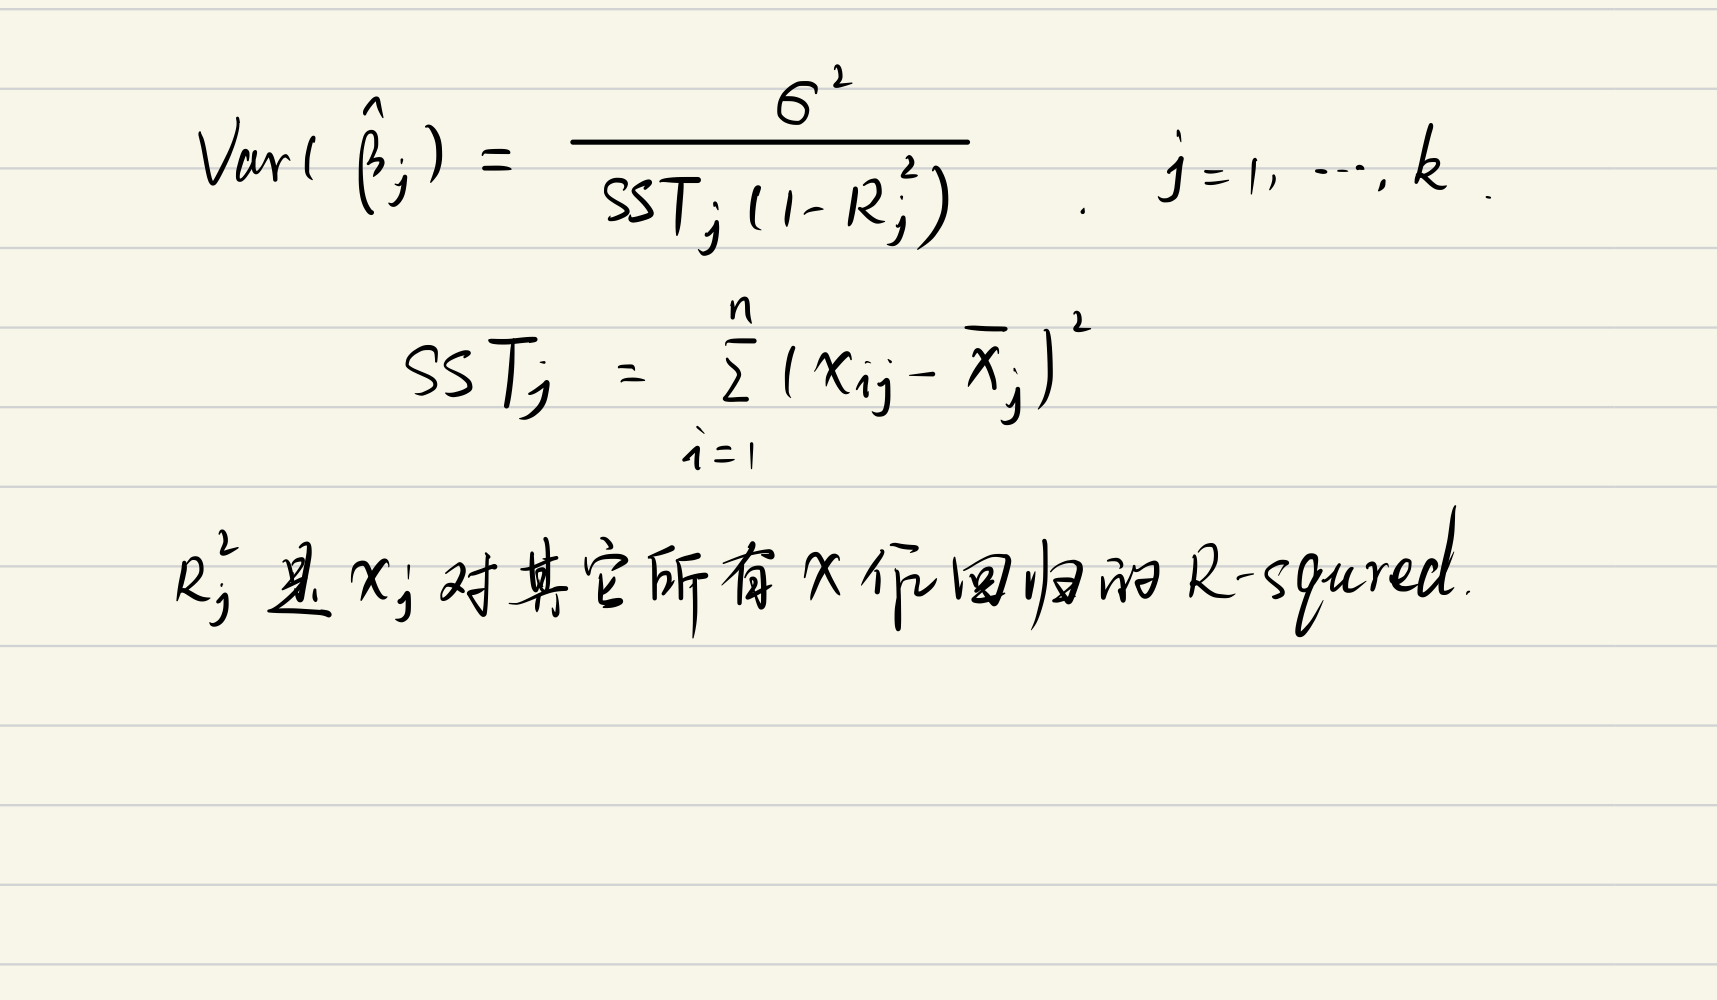 Var(β̂ⱼ) = σ² / SSTⱼ(1-Rⱼ²) . j=1, …, k.
SSTⱼ = Σᵢ₌₁ⁿ (xᵢⱼ - x̄ⱼ)²
Rⱼ² 是 xⱼ 对其它所有 x 作回归的 R-squred.